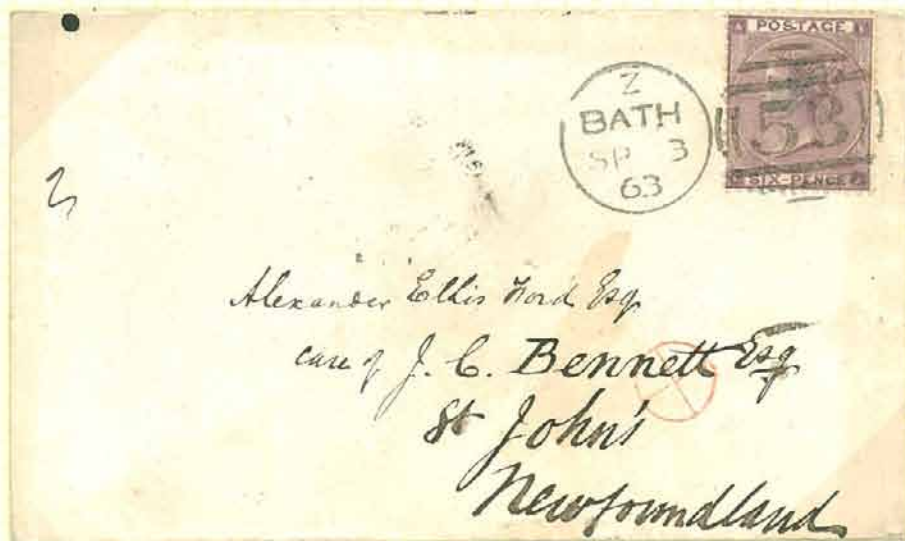 POSTAGE
Z
BATH
SP 3
63
53
SIX-PENCE
Alexander Ellis Ford Esq
care of J. C. Bennett Esq
St John's
Newfoundland